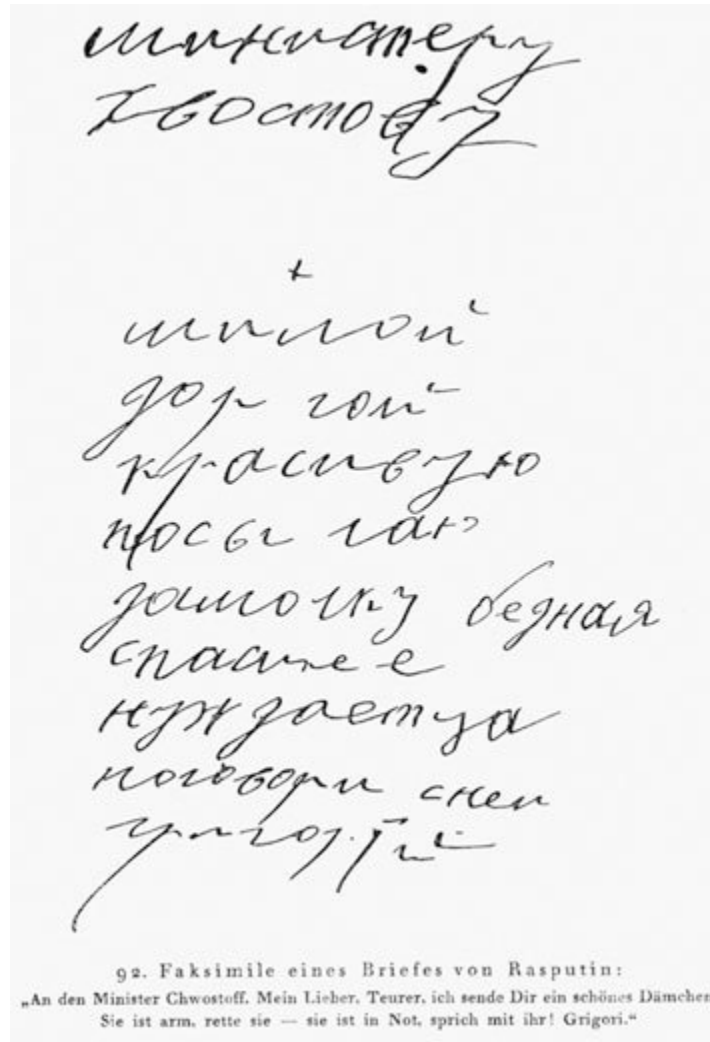 министеру
хвостову
+
милой
дор гой
красивую
посы лаю
дамочку бедная
спаси ее
нуждаетца
поговори снеи
григорiй
92. Faksimile eines Briefes von Rasputin:
„An den Minister Chwostoff. Mein Lieber, Teurer, ich sende Dir ein schönes Dämchen
Sie ist arm, rette sie — sie ist in Not, sprich mit ihr! Grigori.“